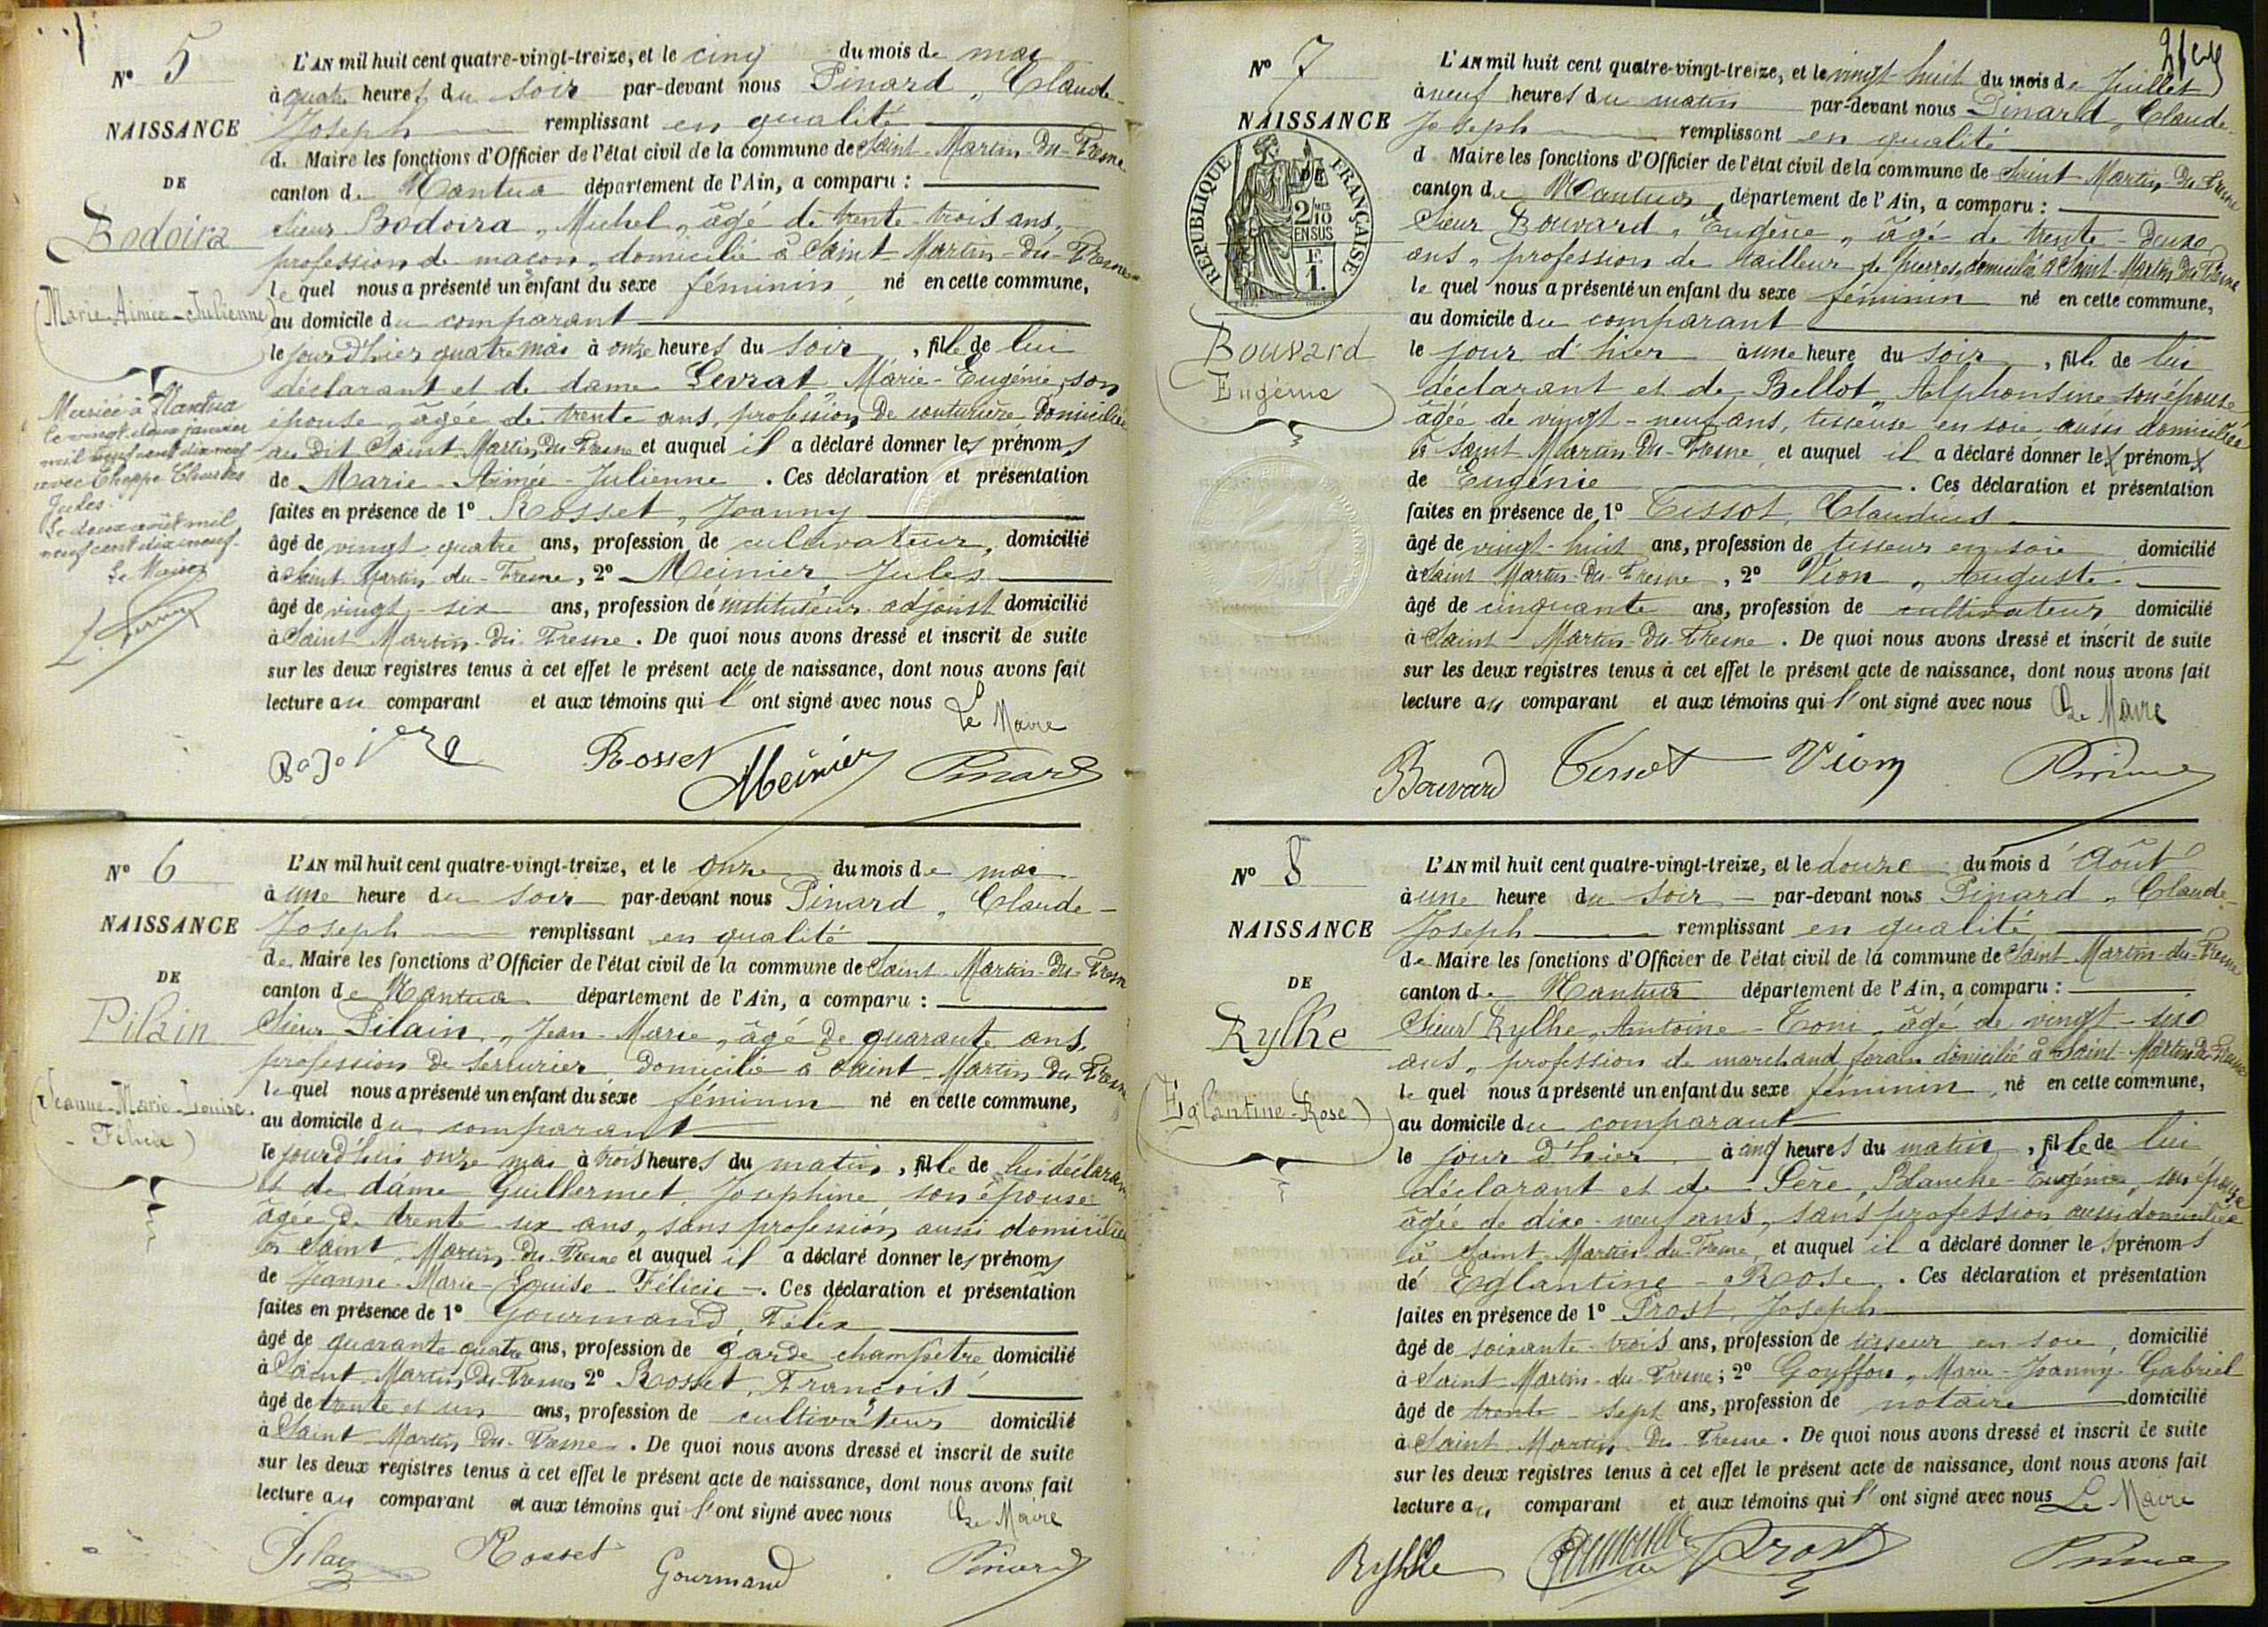 Nº 5
NAISSANCE
DE
Bodoira
(Marie-Aimée-Julienne)
Mariée à Nantua
le vingt-deux janvier
mil neuf cent dix neuf
avec Choppe Charles
Jules.
Le deux août mil
neuf cent dix neuf.
Le Maire
L'AN mil huit cent quatre-vingt-treize, et le cinq du mois de mai
à quatre heures du soir par-devant nous Pinard, Claude-
Joseph remplissant en qualité
de Maire les fonctions d'Officier de l'état civil de la commune de Saint-Martin-du-Fresne
canton de Nantua département de l'Ain, a comparu :
Sieur Bodoira, Michel, âgé de trente-trois ans,
profession de maçon, domicilié à Saint-Martin-du-Fresne
lequel nous a présenté un enfant du sexe féminin né en cette commune,
au domicile du comparant
le jour d'hier quatre mai à onze heures du soir, fille de lui
déclarant et de dame Levrat Marie-Eugénie, son
épouse, âgée de trente ans, profession de couturière domiciliée
au dit Saint-Martin-du-Fresne et auquel il a déclaré donner les prénoms
de Marie-Aimée-Julienne. Ces déclaration et présentation
faites en présence de 1º Rosset, Joanny
âgé de vingt-quatre ans, profession de cultivateur, domicilié
à Saint-Martin-du-Fresne, 2º Meinier, Jules
âgé de vingt-six ans, profession de instituteur adjoint domicilié
à Saint-Martin-du-Fresne. De quoi nous avons dressé et inscrit de suite
sur les deux registres tenus à cet effet le présent acte de naissance, dont nous avons fait
lecture au comparant et aux témoins qui l'ont signé avec nous Le Maire
Bodoira Rosset Meinier Pinard
Nº 6
NAISSANCE
DE
Pilain
(Jeanne-Marie-Louise
-Félicie)
L'AN mil huit cent quatre-vingt-treize, et le onze du mois de mai
à une heure du soir par-devant nous Pinard, Claude-
Joseph remplissant en qualité
de Maire les fonctions d'Officier de l'état civil de la commune de Saint-Martin-du-Fresne
canton de Nantua département de l'Ain, a comparu :
Sieur Pilain, Jean-Marie, âgé de quarante ans,
profession de serrurier domicilié à Saint-Martin-du-Fresne
lequel nous a présenté un enfant du sexe féminin né en cette commune,
au domicile du comparant
le jourd'hui onze mai à trois heures du matin, fille de lui déclarant
et de dame Guillermet, Josephine son épouse
âgée de trente-six ans, sans profession aussi domiciliée
à Saint-Martin-du-Fresne et auquel il a déclaré donner les prénoms
de Jeanne-Marie-Louise-Félicie. Ces déclaration et présentation
faites en présence de 1º Gourmand, Félix
âgé de quarante quatre ans, profession de garde champêtre domicilié
à Saint-Martin-du-Fresne 2º Rosset, François
âgé de trente et un ans, profession de cultivateur domicilié
à Saint-Martin-du-Fresne. De quoi nous avons dressé et inscrit de suite
sur les deux registres tenus à cet effet le présent acte de naissance, dont nous avons fait
lecture au comparant et aux témoins qui l'ont signé avec nous Le Maire
Pilain Rosset Gourmand Pinard
Nº 7
NAISSANCE
DE
RÉPUBLIQUE FRANÇAISE
2/10 MES
EN SUS
F.
1.
Bouvard
Eugénie
L'AN mil huit cent quatre-vingt-treize, et le vingt-huit du mois de Juillet
à neuf heures du matin par-devant nous Pinard, Claude-
Joseph remplissant en qualité
d Maire les fonctions d'Officier de l'état civil de la commune de Saint-Martin-du-Fresne
canton de Nantua, département de l'Ain, a comparu :
Sieur Bouvard, Eugène, âgé de trente-deux
ans, profession de tailleur de pierres, domicilié à Saint-Martin-du-Fresne
lequel nous a présenté un enfant du sexe féminin né en cette commune,
au domicile du comparant
le jour d'hier à une heure du soir, fille de lui
déclarant et de Bellot, Alphonsine son épouse
âgée de vingt-neuf ans, tisseuse en soie aussi domiciliée
à Saint-Martin-du-Fresne et auquel il a déclaré donner le prénom
de Eugénie. Ces déclaration et présentation
faites en présence de 1º Tissot, Claudius
âgé de vingt-huit ans, profession de tisseur en soie domicilié
à Saint-Martin-du-Fresne, 2º Vion, Auguste
âgé de cinquante ans, profession de cultivateur domicilié
à Saint-Martin-du-Fresne. De quoi nous avons dressé et inscrit de suite
sur les deux registres tenus à cet effet le présent acte de naissance, dont nous avons fait
lecture au comparant et aux témoins qui l'ont signé avec nous Le Maire
Bouvard Tissot Vion Pinard
Nº 8
NAISSANCE
DE
Rylhe
(Eglantine-Rose)
L'AN mil huit cent quatre-vingt-treize, et le douze du mois d'Août
à une heure du soir par-devant nous Pinard, Claude-
Joseph remplissant en qualité
de Maire les fonctions d'Officier de l'état civil de la commune de Saint-Martin-du-Fresne
canton de Nantua département de l'Ain, a comparu :
Sieur Rylhe, Antoine-Toni, âgé de vingt-six
ans, profession de marchand forain domicilié à Saint-Martin-du-Fresne
lequel nous a présenté un enfant du sexe féminin, né en cette commune,
au domicile du comparant
le jour d'hier à cinq heures du matin, fille de lui
déclarant et de Père, Blanche-Eugénie, son épouse
âgée de dix-neuf ans, sans profession aussi domiciliée
à Saint-Martin-du-Fresne, et auquel il a déclaré donner les prénoms
de Eglantine-Rose. Ces déclaration et présentation
faites en présence de 1º Prost, Joseph
âgé de soixante-trois ans, profession de tisseur en soie, domicilié
à Saint-Martin-du-Fresne ; 2º Gouffon, Marie-Joanny-Gabriel
âgé de trente-sept ans, profession de notaire domicilié
à Saint-Martin-du-Fresne. De quoi nous avons dressé et inscrit de suite
sur les deux registres tenus à cet effet le présent acte de naissance, dont nous avons fait
lecture au comparant et aux témoins qui l'ont signé avec nous Le Maire
Rylhe Prost Pinard